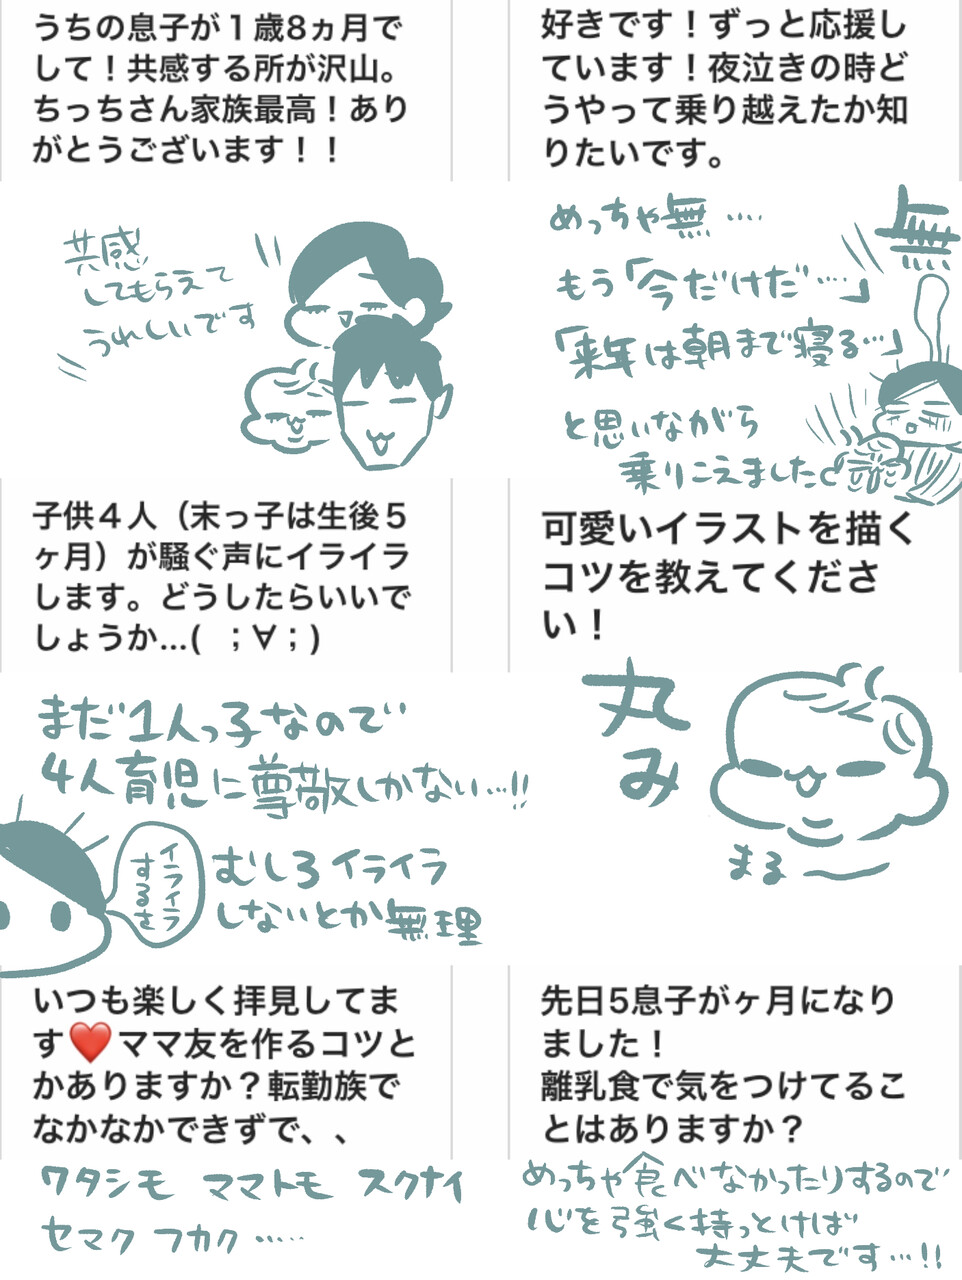 うちの息子が１歳8ヵ月で
して！共感する所が沢山。
ちっちさん家族最高！あり
がとうございます！！
共感
してもらえて
うれしいです
好きです！ずっと応援し
ています！夜泣きの時ど
うやって乗り越えたか知
りたいです。
めっちゃ無‥‥
無
もう「今だけだ‥‥」
「来年は朝まで寝る‥」
と思いながら
乗りこえました
子供４人（末っ子は生後５
ヶ月）が騒ぐ声にイライラ
します。どうしたらいいで
しょうか...(　；∀；)
まだ1人っ子なので
4人育児に尊敬しかない…!!
イライラ
するさ
むしろイライラ
しないとか無理
可愛いイラストを描く
コツを教えてくださ
い！
丸み
まる～
いつも楽しく拝見してま
す❤️ママ友を作るコツと
かありますか？転勤族で
なかなかできずで、、
ワタシモ ママトモ スクナイ
セマク フカク……
先日5息子がヶ月になり
ました！
離乳食で気をつけてるこ
とはありますか？
めっちゃ食べなかったりするので
心を強く持っとけば
大丈夫です…!!